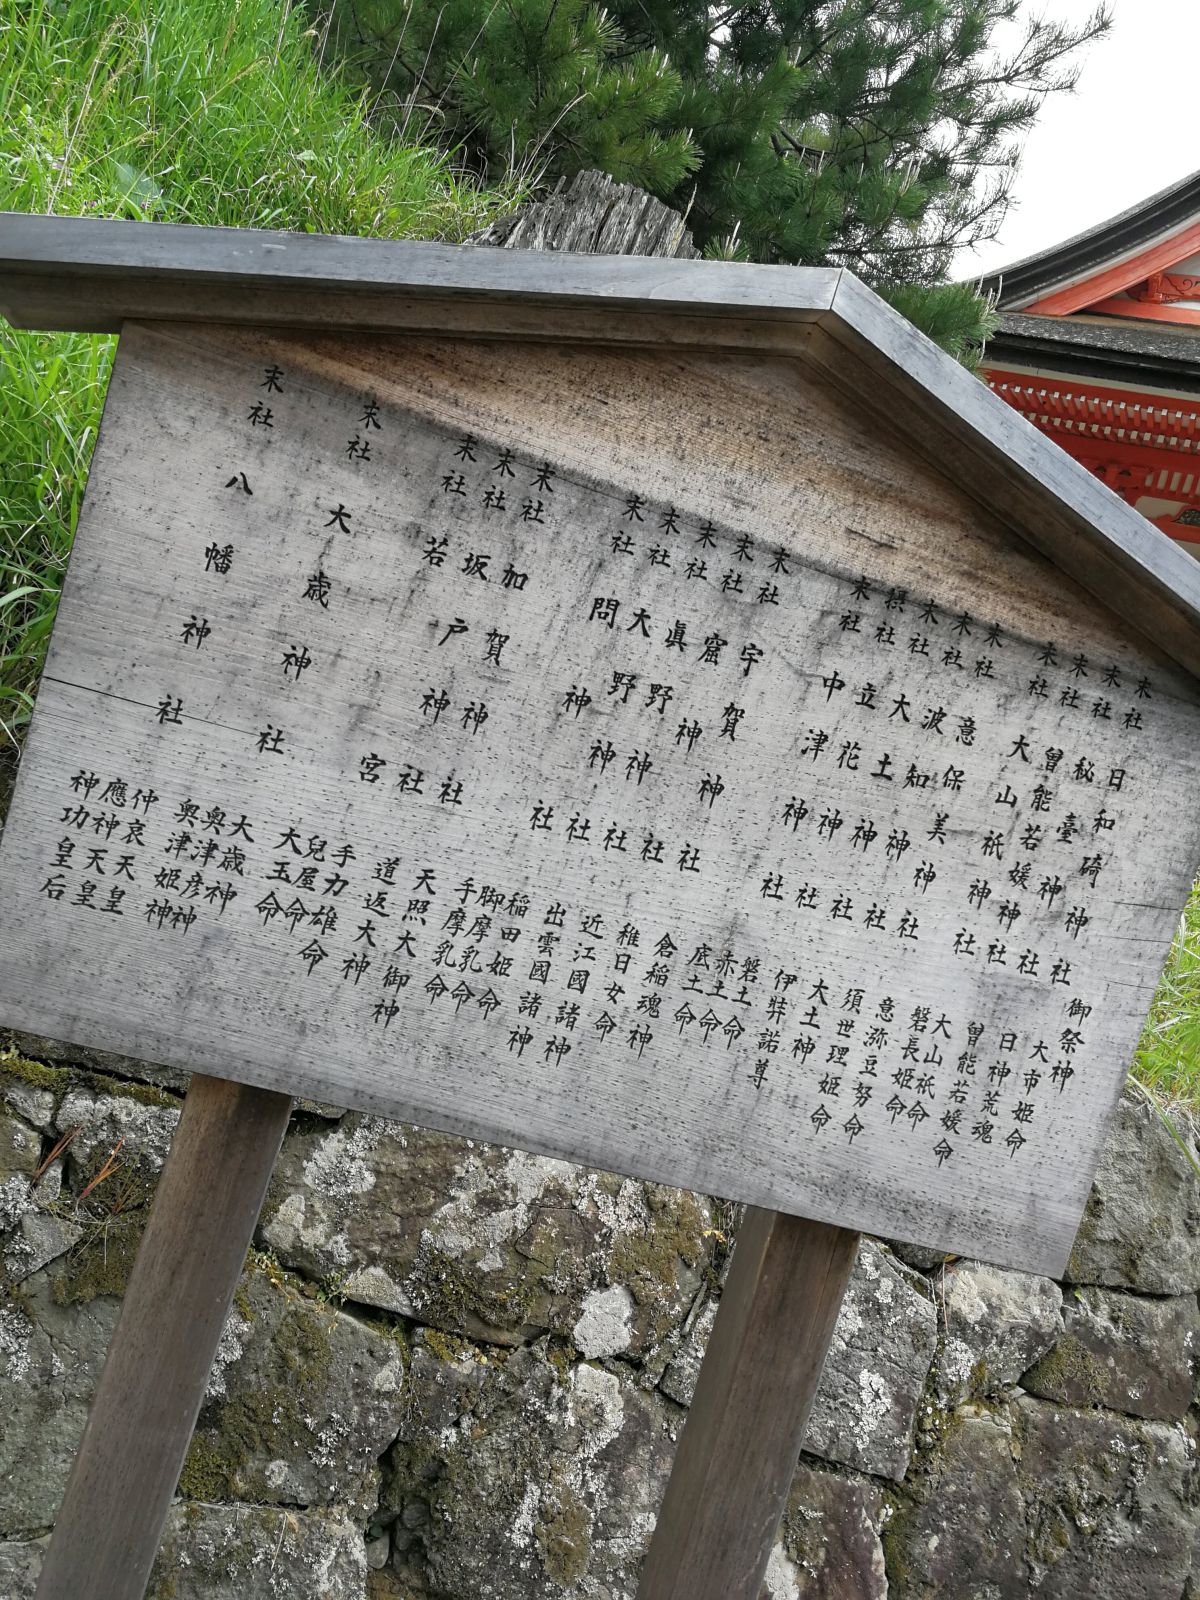 末社 日和碕神社 御祭神 大市姫命
末社 秘臺神社 日神荒魂
末社 曽能若媛神社 曽能若媛命
末社 大山祇神社 大山祇命 磐長姫命
末社 意保美神社 意弥豆努命
末社 波知神社 須世理姫命
末社 大土神社 大土神
摂社 立花神社 伊弉諾尊
末社 中津神社 磐土命 赤土命 底土命
末社 宇賀神社 倉稲魂神
末社 窟神社 稚日女命
末社 眞野神社 近江國諸神
末社 大野神社 出雲國諸神
末社 問神社 稲田姫命 脚摩乳命 手摩乳命
末社 加賀神社 天照大御神
末社 坂戸神社 道返大神
末社 若宮 手力雄命 兒屋命 大玉命
末社 大歳神社 大歳神 奥津彦神 奥津姫神
末社 八幡神社 仲哀天皇 應神天皇 神功皇后